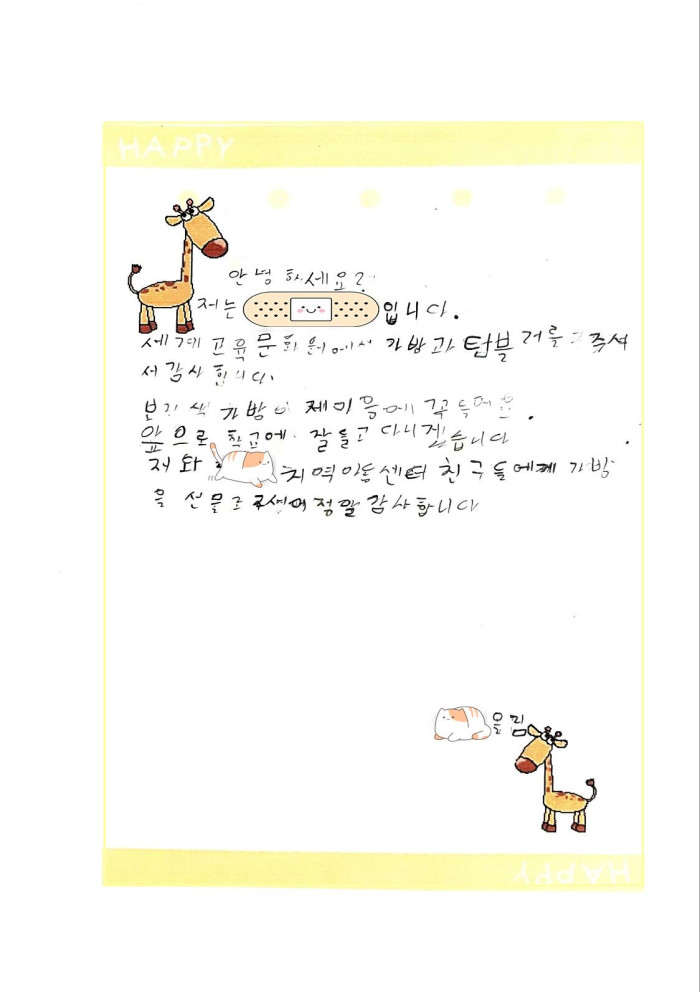 HAPPY
안녕하세요?
저는 입니다.
세계교육문화원에서 가방과 텀블러를 주셔
서 감사합니다.
분홍색 가방이 제 마음에 꼭 들어요.
앞으로 학교에 잘 들고 다니겠습니다
저와 지역아동센터 친구들에게 가방
을 선물로 주셔서 정말 감사합니다
올림
HAPPY